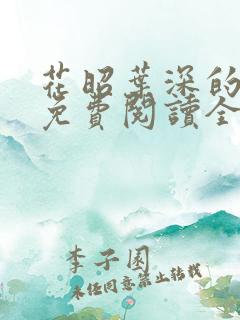 花昭葉深的
免費閱讀全
李子園
未經同意禁止轉載